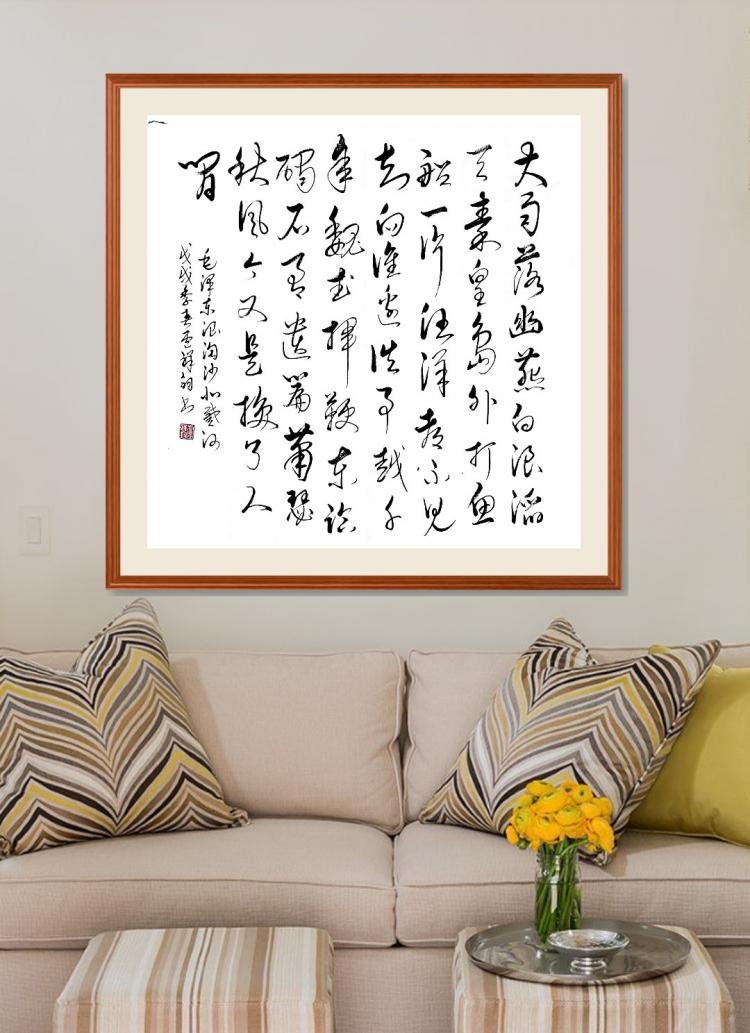 大雨落幽燕白浪滔
天秦皇岛外打鱼
船一片汪洋都不见
知向谁边往事越千
年魏武挥鞭东临
碣石有遗篇萧瑟
秋风今又是换了人
间
毛泽东浪淘沙北戴河
戊戌季春祥书